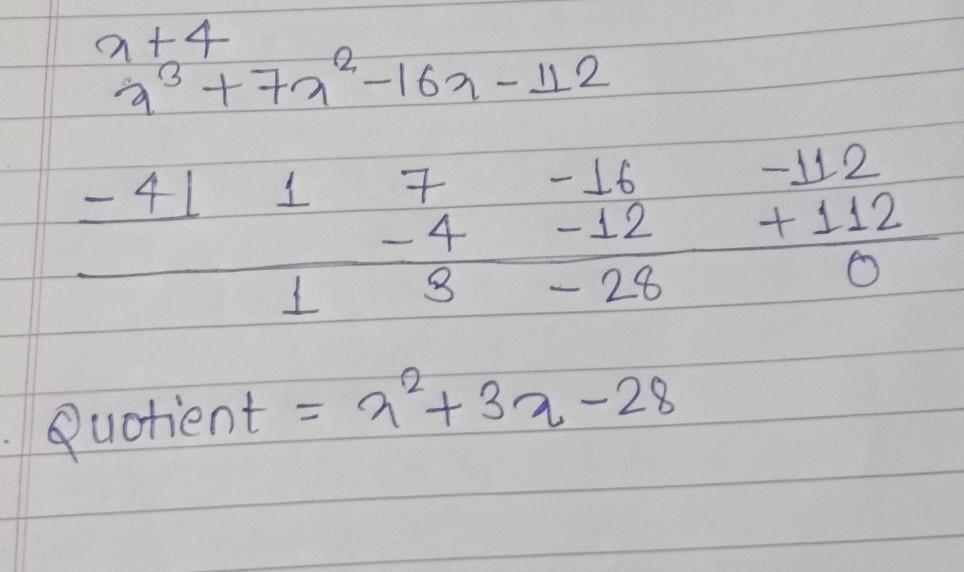 x+4
x³+7x²-16x-112
-4| 1 7 -16 -112
-4 -12 +112
1 3 -28 0
Quotient = x²+3x-28